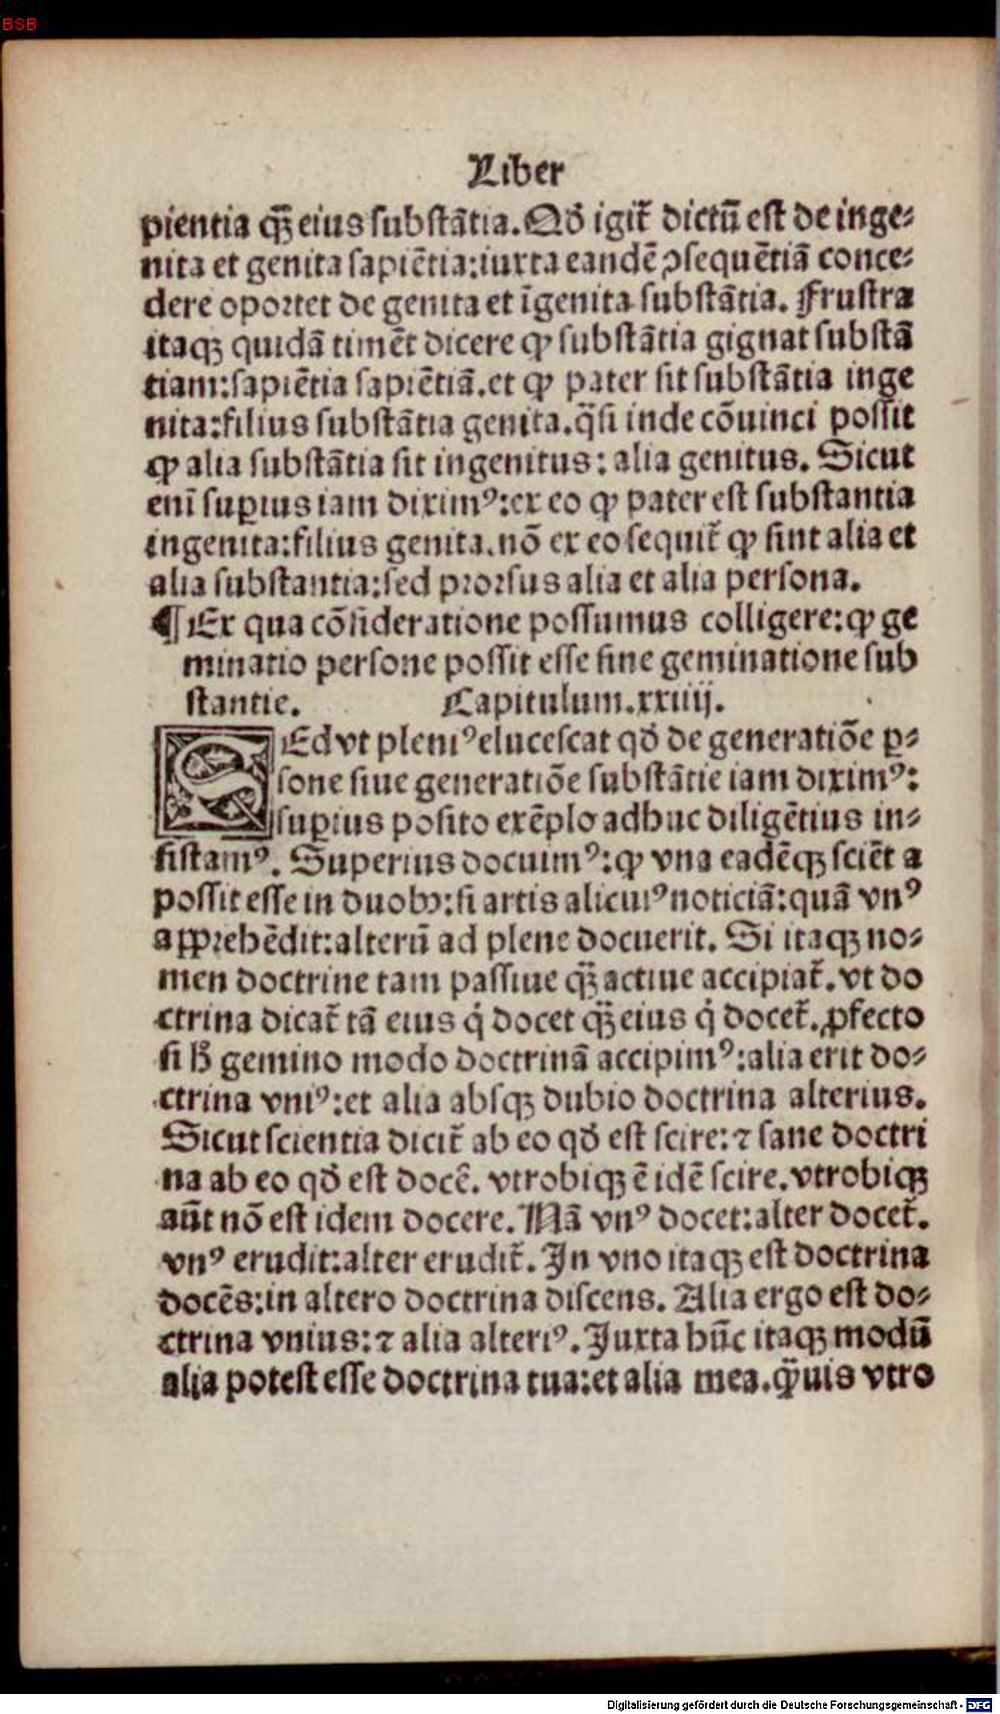 BSB
Liber
pientia qꝫ̃ eius substãtia. Qđ igit̃ dictũ est de inge⸗
nita et genita sapiẽtia:iuxta eandẽ ꝯsequẽtiã conce⸗
dere oportet de genita et ĩgenita substãtia. Frustra
itaqꝫ quidã timẽt dicere ꝙ substãtia gignat substã
tiam:sapiẽtia sapiẽtiã.et ꝙ pater sit substãtia inge
nita:filius substãtia genita.q̃si inde cõuinci possit
ꝙ alia substãtia sit ingenitus: alia genitus. Sicut
enĩ suꝑius iam diximꝰ:ex eo ꝙ pater est substantia
ingenita:filius genita.nõ ex eo sequit̃ ꝙ sint alia et
alia substantia:sed prorsus alia et alia persona.
¶ Ex qua cõsideratione possumus colligere:ꝙ ge
minatio persone possit esse sine geminatione sub
stantie. Capitulum.xxiiij.
SEd vt pleniꝰ elucescat qđ de generatiõe ꝑ⸗
sone siue generatiõe substãtie iam diximꝰ:
suꝑius posito exẽplo adhuc diligẽtius in⸗
sistamꝰ. Superius docuimꝰ:ꝙ vna eadẽqꝫ sciẽt a
possit esse in duobꝰ:si artis alicuiꝰ noticiã:quã vnꝰ
apprehẽdit:alterũ ad plene docuerit. Si itaqꝫ no⸗
men doctrine tam passiue qꝫ̃ actiue accipiat̃. vt do
ctrina dicat̃ tã eius q̇ docet qꝫ̃ eius q̇ docet̃. ꝓfecto
si ħ gemino modo doctrinã accipimꝰ:alia erit do⸗
ctrina vniꝰ:et alia absqꝫ dubio doctrina alterius.
Sicut scientia dicit̃ ab eo qđ est scire:⁊ sane doctri
na ab eo qđ est docẽ. vtrobiqꝫ ẽ idẽ scire.vtrobiqꝫ
aũt nõ est idem docere. Nã vnꝰ docet:alter docet̃.
vnꝰ erudit:alter erudit̃. In vno itaqꝫ est doctrina
docẽs:in altero doctrina discens. Alia ergo est do⸗
ctrina vnius:⁊ alia alteriꝰ. Juxta hũc itaqꝫ modũ
alia potest esse doctrina tua:et alia mea.qꝫ̃uis vtro
Digitalisierung gefördert durch die Deutsche Forschungsgemeinschaft - DFG